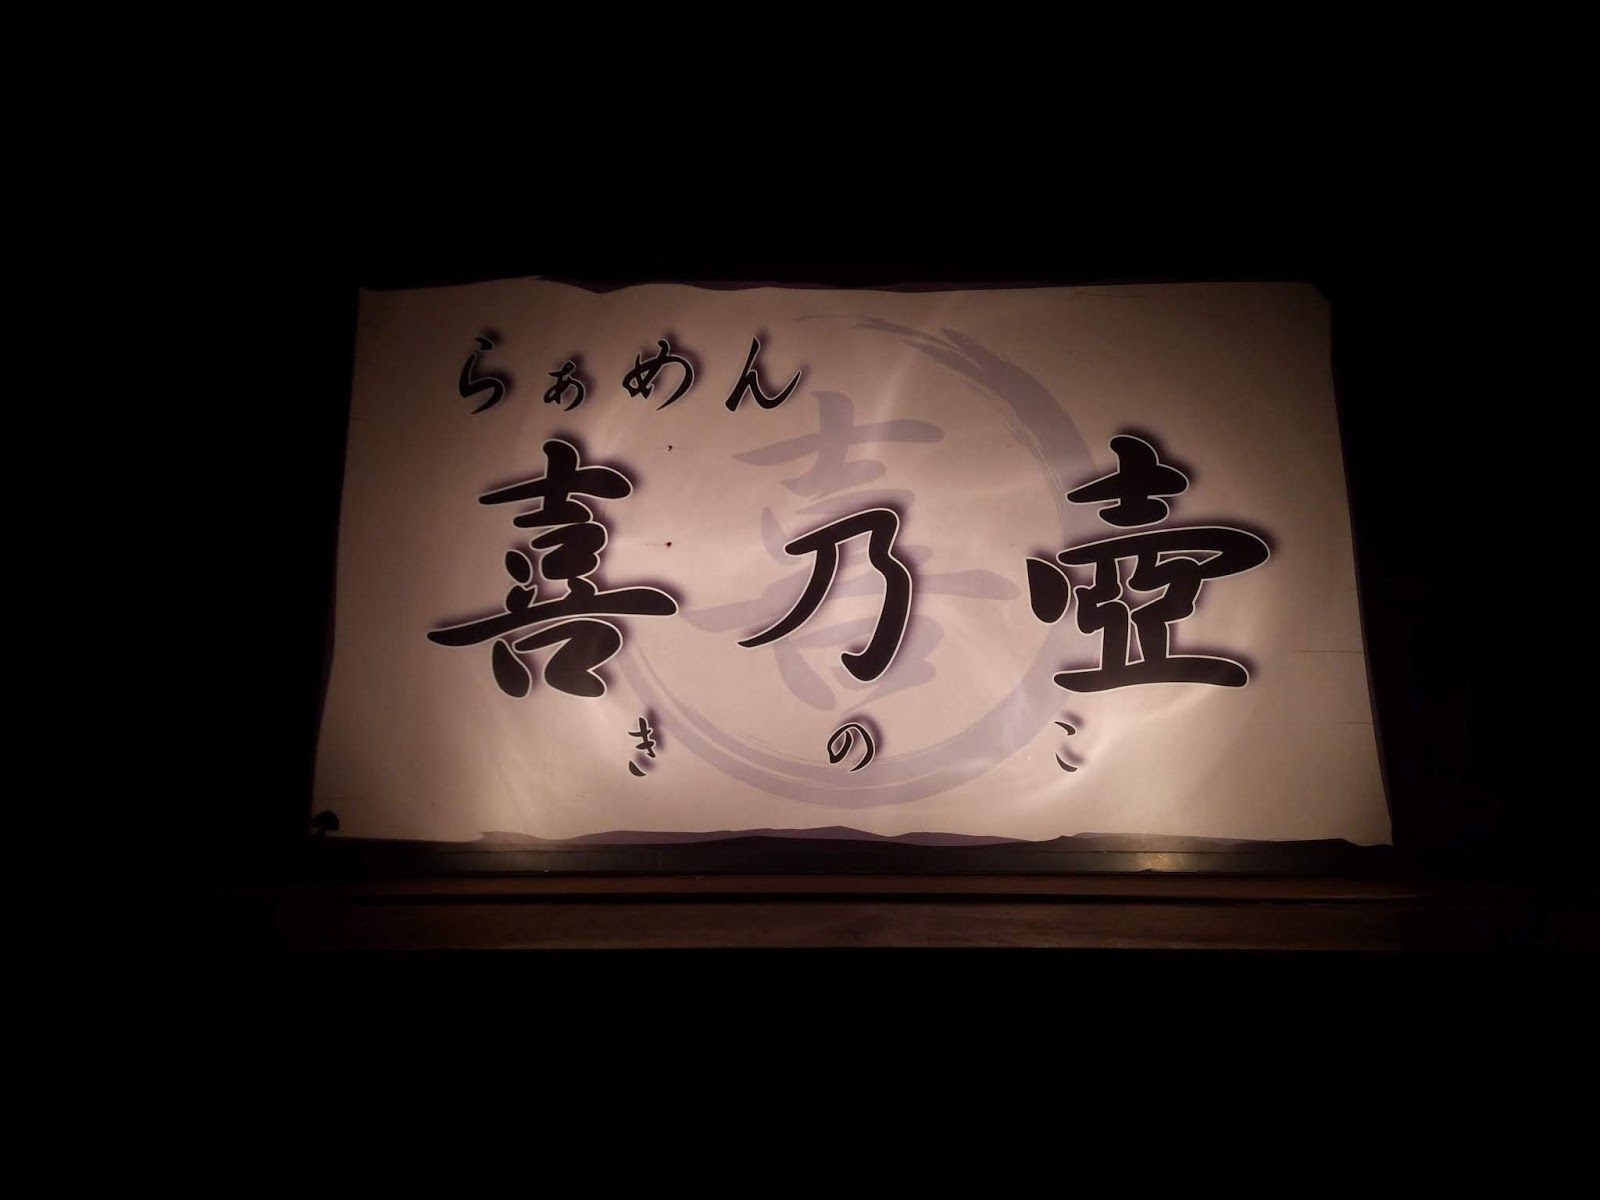 らぁめん
喜乃壺
きのこ
喜